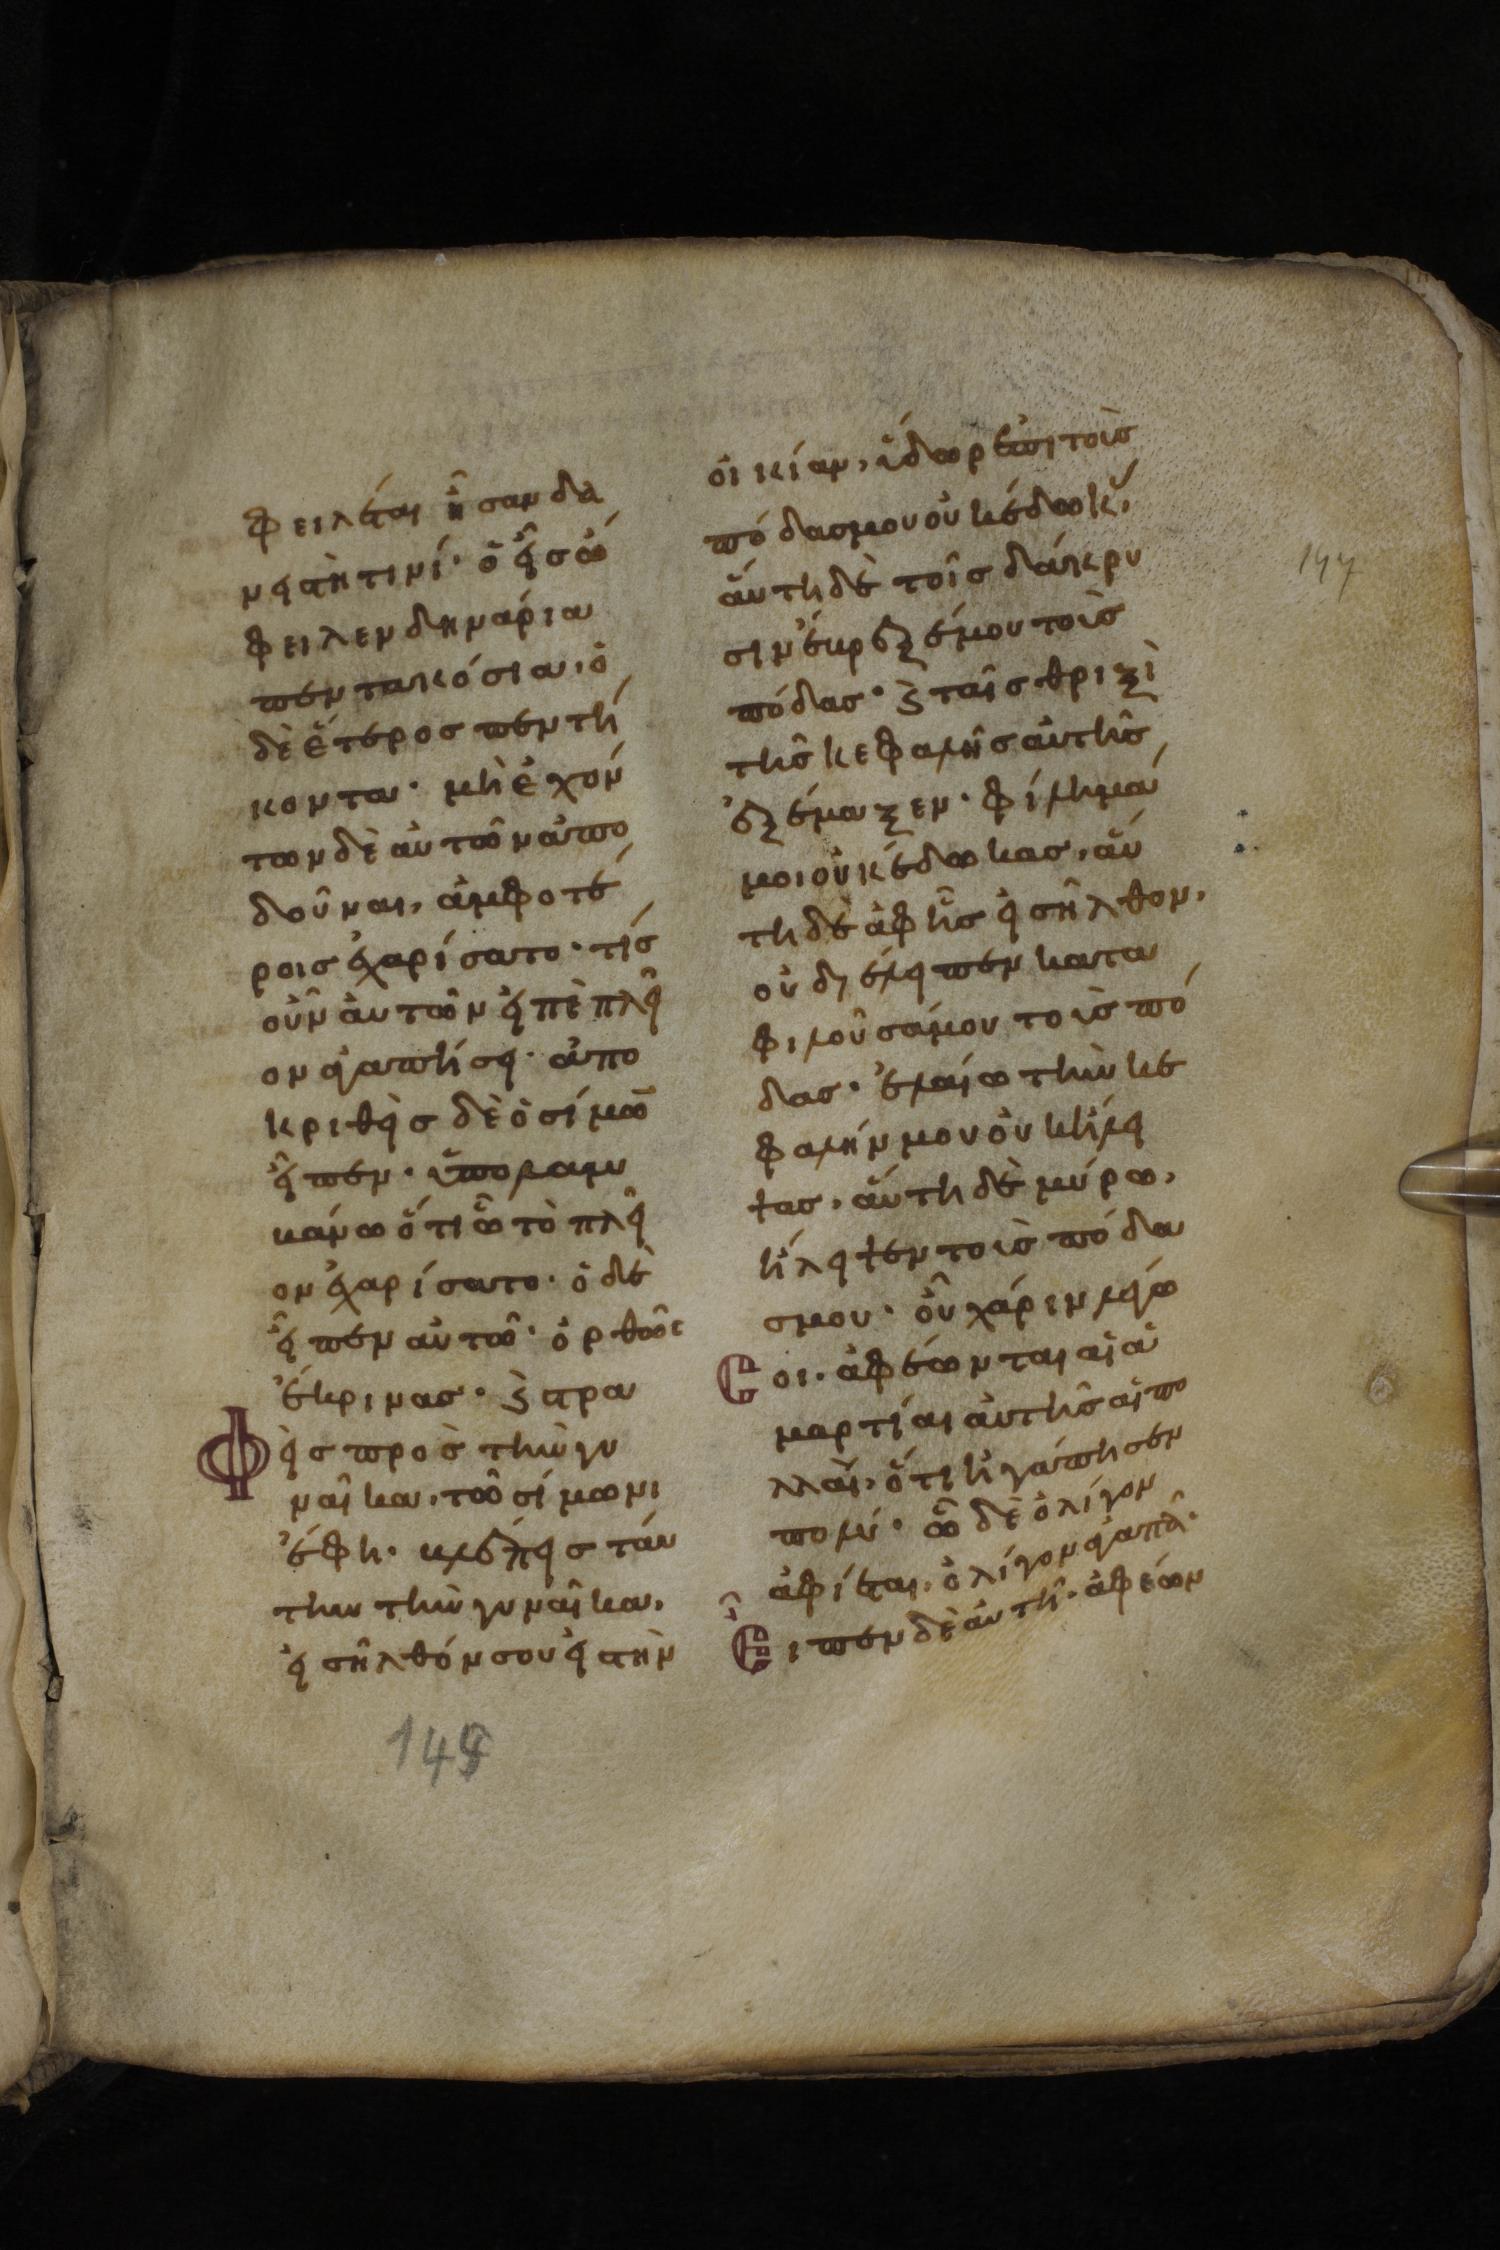 φειλέται ἦσαν δα
νειστῆ τινί· ὁ εἷς ὤ
φειλεν δηνάρια
πεντακόσια, ὁ
δὲ ἕτερος πεντή
κοντα· μὴ ἐχόν
των δὲ αὐτῶν ἀπο
δοῦναι, ἀμφοτέ
ροις ἐχαρίσατο· τίς
οὖν αὐτῶν εἰπὲ πλεῖ
ον ἀγαπήσει· ἀπο
κριθεὶς δὲ ὁ σίμω̅
εἶπεν· ὑπολαμ
βάνω ὅτι ᾧ τὸ πλεῖ
ον ἐχαρίσατο· ὁ δὲ
εἶπεν αὐτῶ· ὀρθῶς
ἔκρινας· ϗ στρα
Φεὶς πρὸς τὴν γυ
ναῖκα, τῶ σίμωνι
ἔφη· βλέπεις ταύ
την τὴν γυναῖκα,
εἰσῆλθόν σου εἰς τὴν
οἰκίαν, ὕδωρ ἐπὶ τοὺς
πόδας μου οὐκ ἔδωκ,
αὕτη δὲ τοῖς δάκρυ
σιν ἔβρεξέ μου τοὺς
πόδας· ϗ ταῖς θριξὶ
τῆς κεφαλῆς αὐτῆς
ἐξέμαξεν· φίλημά
μοι οὐκ ἔδωκας, αὕ
τη δὲ ἀφ' ἧς εἰσῆλθον,
οὐ διέλειπεν κατα
φιλοῦσά μου τοὺς πό
δας· ἐλαίω τὴν κε
φαλήν μου οὐκ ἤλει
ψας, αὕτη δὲ μύρω,
ἤλειψεν τοὺς πόδα
ς μου· οὗ χάριν λέγω
Σοι· ἀφέωνται αἱ ἁ
μαρτίαι αὐτῆς αἱ πο
λλαί, ὅτι ἠγάπησεν
πολύ· ᾧ δὲ ὀλίγον
ἀφίεται, ὀλίγον ἀγαπᾶ·
Εἶπεν δὲ αὐτῆ· ἀφέων
147